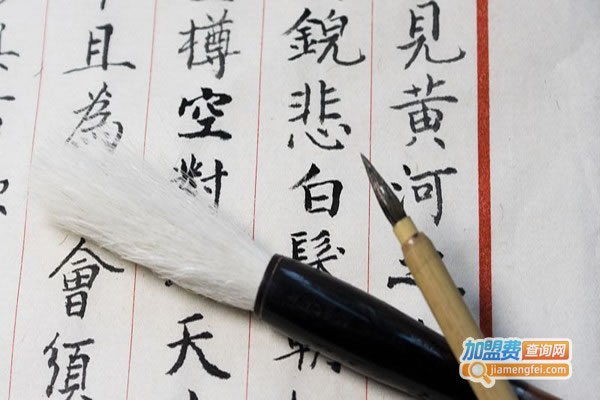 見黄河
鏡悲白髮
樽空對天
且為會須
加盟费查询网
jiamengfei.com